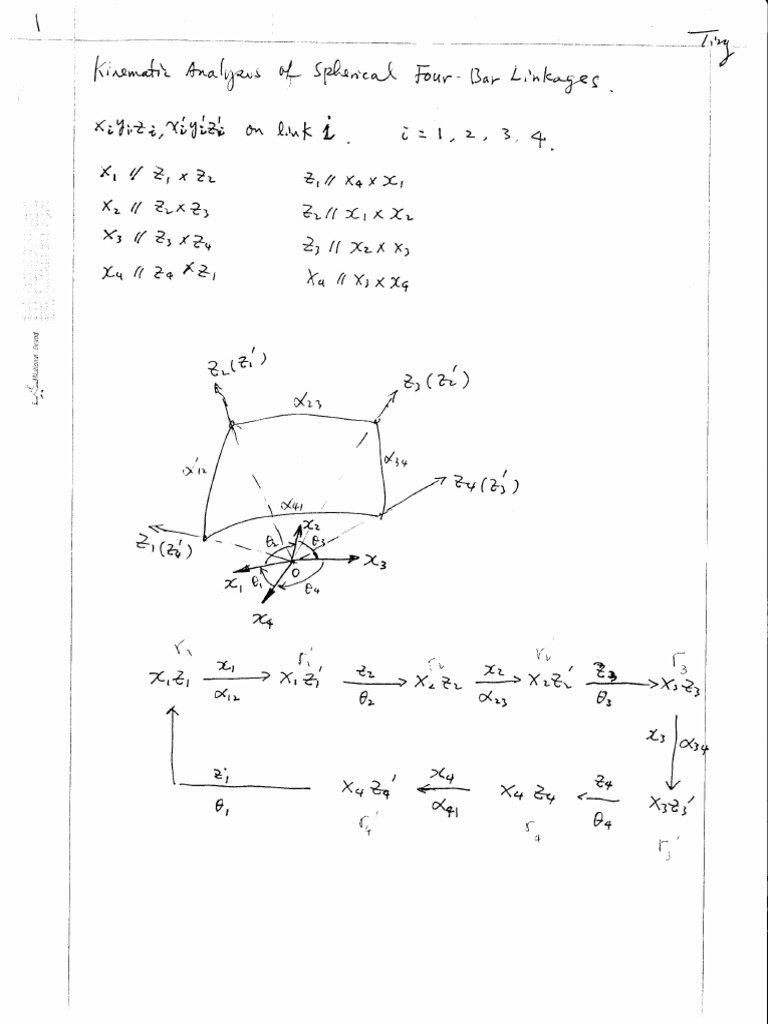 1
Ting
Kinematic Analysis of Spherical Four-Bar Linkages.
xᵢyᵢzᵢ, xᵢ'yᵢ'zᵢ' on link i. i = 1, 2, 3, 4.
x₁ // z₁ × z₂ z₁ // x₄ × x₁
x₂ // z₂ × z₃ z₂ // x₁ × x₂
x₃ // z₃ × z₄ z₃ // x₂ × x₃
x₄ // z₄ × z₁ x₄ // x₃ × x₄
z₂(z₁')
z₃(z₂')
α₂₃
α₁₂
α₃₄
z₄(z₃')
α₄₁
x₂
z₁(z₄')
θ₂ θ₃
x₃
x₁ θ₁ O θ₄
x₄
r₁ r₁' r₂ r₂' r₃
x₁z₁ x₁/α₁₂ → x₁z₁' z₂/θ₂ → x₂z₂ x₂/α₂₃ → x₂z₂' z₃/θ₃ → x₃z₃
x₃ α₃₄
z₁/θ₁ x₄z₄' x₄/α₄₁ ← x₄z₄ z₄/θ₄ ← x₃z₃'
r₄' r₄ r₃'